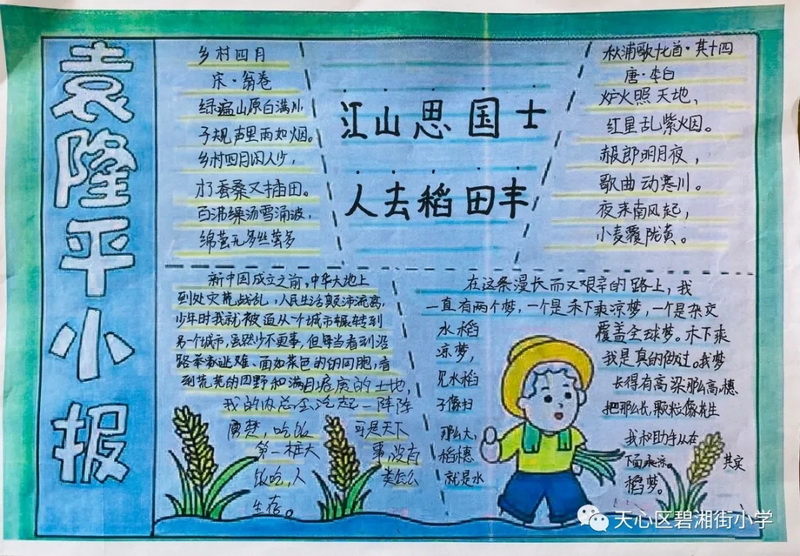 袁隆平小报
乡村四月
宋·翁卷
绿遍山原白满川
子规声里雨如烟。
乡村四月闲人少，
才蚕桑又插田。
百沸缲汤雪涌波，
江山思国士
人去稻田丰
秋浦歌十七首·其十四
唐·李白
炉火照天地，
红星乱紫烟。
赧郎明月夜，
歌曲动寒川。
夜来南风起，
小麦覆陇黄。
新中国成立之前，中华大地上
到处灾荒战乱，人民生活颠沛流离，
少年时我就被迫从一个城市辗转到
另一个城市，虽然少不更事，但每当看到沿
路举家逃难、面如菜色的同胞，看
到荒芜的田野和满目疮痍的土地
我的内总会泛起一阵阵
痛楚，吃饭可是天下
第一桩大事，没有
饭吃，人类怎么
生存。
在这条漫长而又艰辛的路上，我
一直有两个梦，一个是禾下乘凉梦，一个是杂交
水稻覆盖全球梦。禾下乘
凉梦，我是真的做过。我梦
见水稻长得有高粱那么高，穗
子像扫把那么长，颗粒像花生
那么大，我和助手坐在
稻穗下面乘凉。其实
就是水稻梦。
天心区碧湘街小学